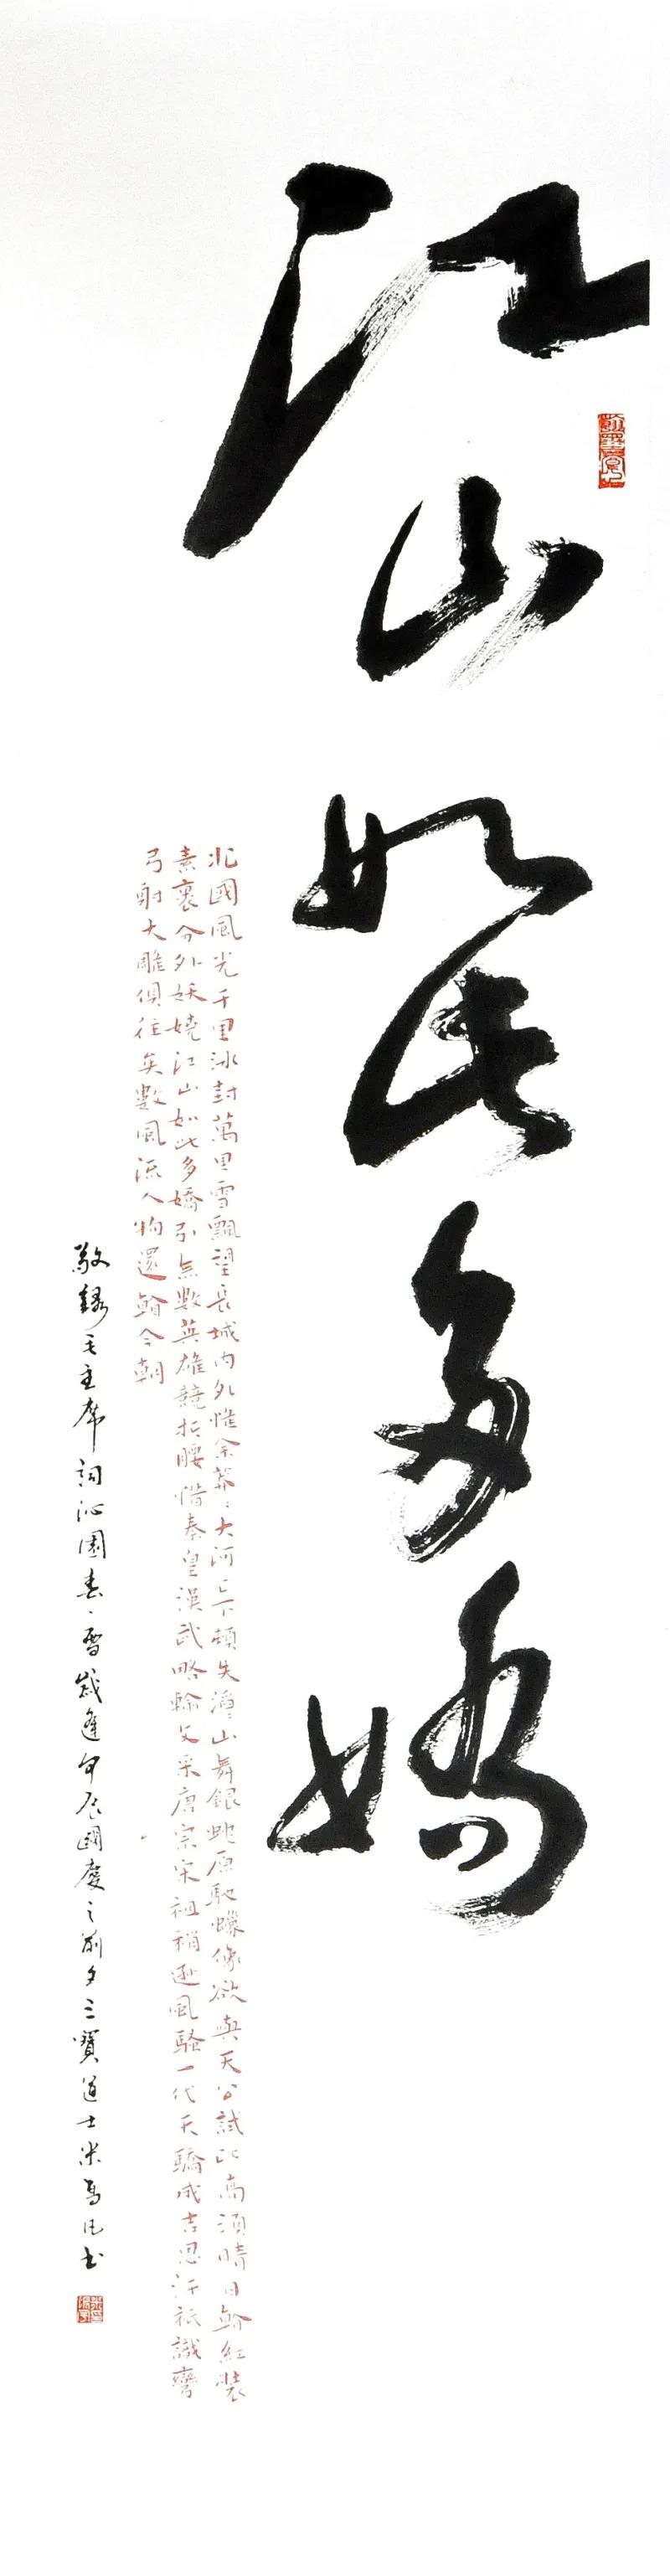 江山如此多嬌
北國風光千里冰封萬里雪飄望長城內外惟余莽々大河上下頓失滔々山舞銀蛇原馳蠟像欲與天公試比高須晴日看紅裝
素裹分外妖嬈江山如此多嬌引無數英雄競折腰惜秦皇漢武略輸文采唐宗宋祖稍遜風騷一代天驕成吉思汗祇識彎
弓射大雕俱往矣數風流人物還看今朝
敬錄毛主席詞沁園春、雪歲逢甲辰國慶之前夕三寶道士米書